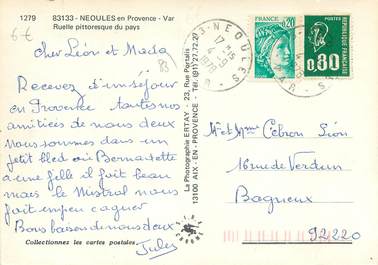 1279 83133 - NEOULES en Provence - Var
Ruelle pittoresque du pays
6€
Cher Léon et Mado
83)
Recevez d'un séjour
en Provence toutes nos
amitiés de nous deux
Nous sommes dans un
petit bled où Bernadette
a une fille il fait beau
mais le Mistral nous
fait un peu cagner
Bons baisers de nous deux
Jules
Collectionnez les cartes postales.
La Photographie ERTAY - 23, Rue Portalis
13100 AIX - EN - PROVENCE - Tél. (91) 27.72.29
83 - NEOULES
VAR
0,20
0.80
REPUBLIQUE FRANÇAISE
Mr et Mme Cebron Léon
16 rue de Verdun
Bagneux
92220